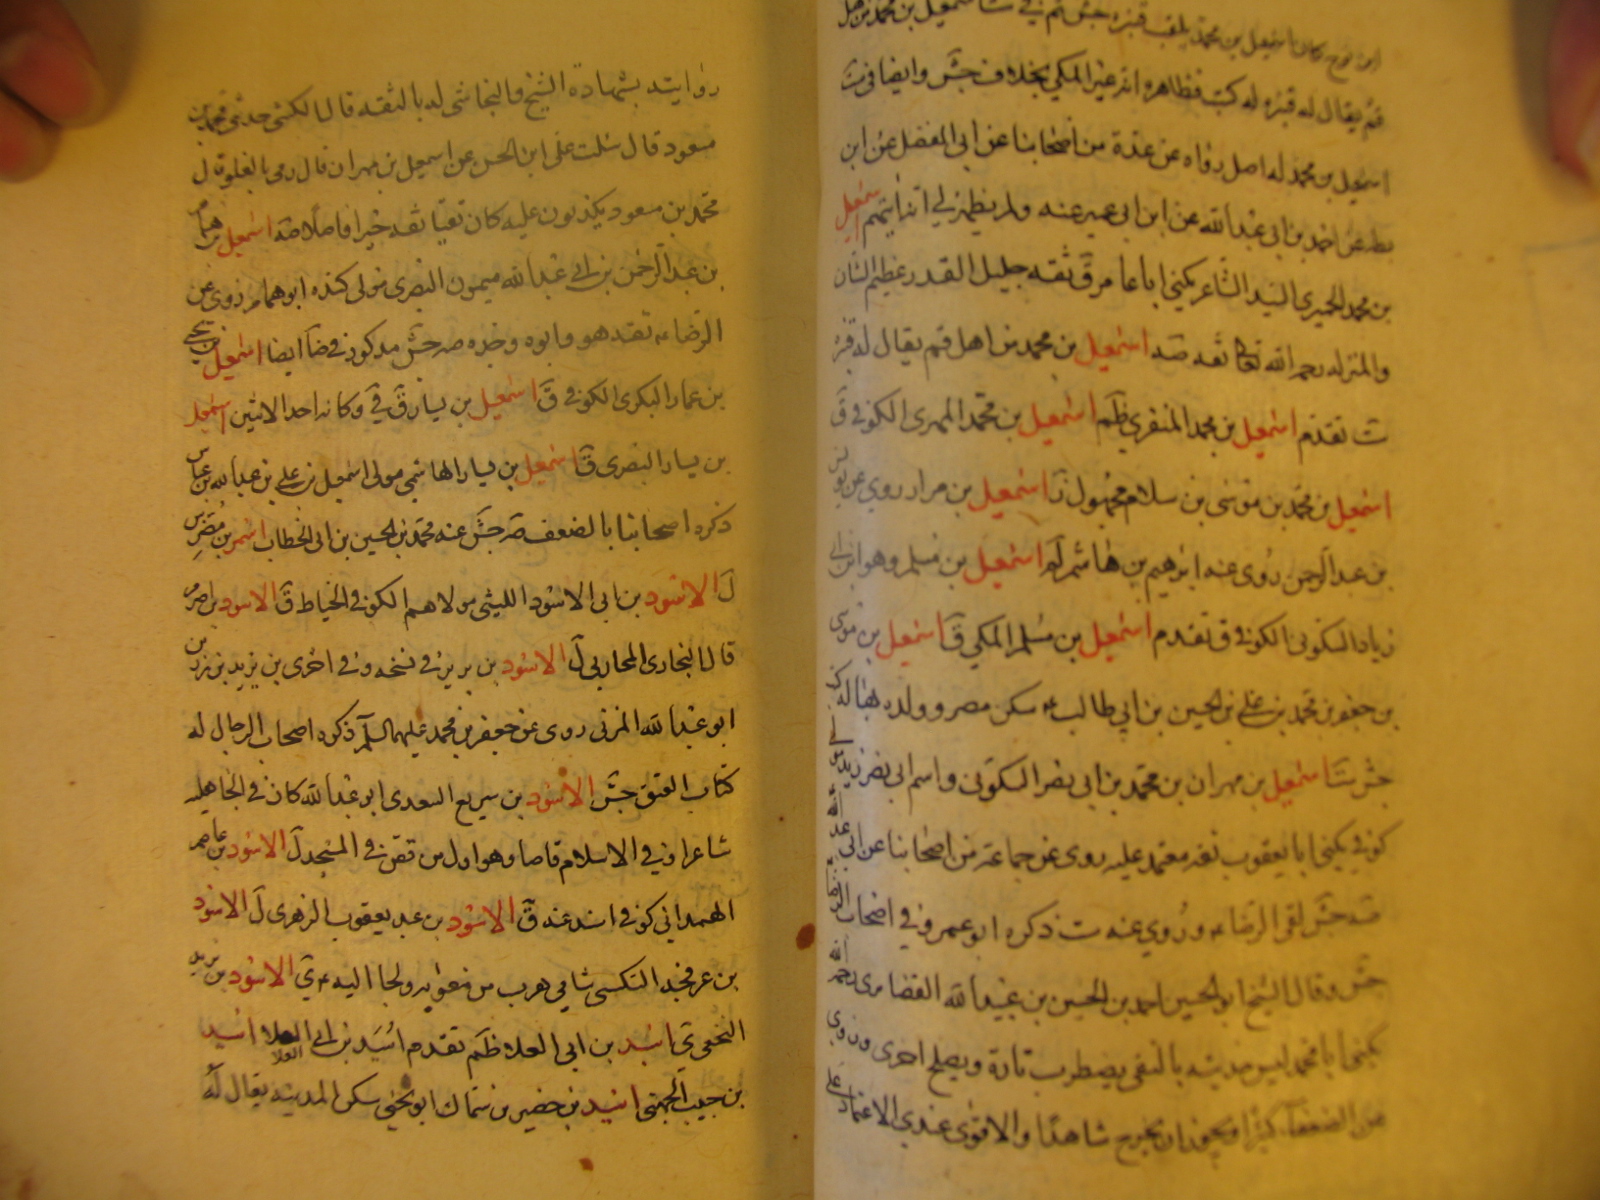 ابن نوح وكان اسمعيل بن محمد يلقب قنبره جش ثم في اسمعيل بن محمد من اهل
قم يقال له قنبره له كتب فظاهره انه غير المكي بخلاف جش وايضا في ست
اسمعيل بن محمد له اصل رواه عن عدة من اصحابنا عن ابي المفضل عن ابن
بطه عن احمد بن ابي عبد الله عن ابن ابي عمير عنه ولم يظهر لي اتهم اسمعيل
بن محمد الحميري السيد الشاعر يكنى ابا عامر ق ثقه جليل القدر عظيم الشان
والمنزله رحمه الله تعالى ثقه صه اسمعيل بن محمد من اهل قم يقال له قنبره
ست تقدم اسمعيل بن محمد المنقري ظم اسمعيل بن محمد المهري الكوفي ق
اسمعيل بن محمد بن موسى بن سلام مجهول اسمعيل بن مرار روى عن يونس
بن عبد الرحمن روى عنه ابرهيم بن هاشم لم اسمعيل بن مسلم وهو ابن ابي
زياد السكوني الكوفي ق تقدم اسمعيل بن مسلم المكي ق اسمعيل بن موسى
بن جعفر بن محمد بن علي بن الحسين بن ابي طالب ع سكن مصر وولده بها له كتب
جش ست اسمعيل بن مهران بن محمد بن ابي نصر السكوني واسم ابي نصر زيد مولى
كوفي يكنى ابا يعقوب ثقه معتمد عليه روى عن جماعة من اصحابنا عن ابي عبد الله
صه جش لقي الرضا ع وروى عنه ست ذكره ابو عمرو في اصحاب الرضا
جش وقال الشيخ ابو الحسين احمد بن الحسين بن عبيد الله الغضايري رحمه الله
يكنى ابا محمد ليس حديثه بالنقي يضطرب تارة ويصلح اخرى وروى
عن الضعفاء كثيرا ويجوز ان يخرج شاهدا والاقوى عندي الاعتماد على
روايته بشهادة الشيخ والنجاشي له بالثقه قال الكشي حدثني محمد بن
مسعود قال سئلت علي ابن الحسن عن اسمعيل بن مهران قال رمي بالغلو قال
محمد بن مسعود يكذبون عليه كان تقيا ثقه خيرا فاضلا صه اسمعيل بن همام
بن عبد الرحمن بن ابي عبد الله ميمون البصري مولى كنده ابو همام روى عن
الرضا ع ثقه هو وابوه وجده صه جش مذكور في ضا ايضا اسمعيل بن يحيى
بن عمار البكري الكوفي ق اسمعيل بن يسار ق في وكانه احد الاثنين اسمعيل
بن يسار البصري ق اسمعيل بن يسار الهاشمي مولى اسمعيل بن علي بن عبد الله بن عباس
ذكره اصحابنا بالضعف صه جش عنه محمد بن الحسين بن ابي الخطاب اسمر بن مضرس
ل الاسود بن ابي الاسود الليثي مولاهم الكوفي الخياط ق الاسود بن اصرم
قال البخاري المحاربي ل الاسود بن برير في نسخه وفي اخرى بن يزيد بن رزين
ابو عبد الله المزني روى عن جعفر بن محمد عليهما السلم ذكره اصحاب الرجال له
كتاب العتق جش الاسود بن سريع السعدي ابو عبد الله كان في الجاهليه
شاعرا وفي الاسلام قاصا وهو اول من قص في المسجد ل الاسود بن عاصم
الهمداني كوفي اسند عنه ق الاسود بن عبد يعقوب الزهري ل الاسود
بن عرفجه السكسي شامي هرب من معويه ولجا اليه ع ي الاسود بن يزيد
النخعي ي اسيد بن ابي العلا ظم تقدم اسيد بن ابي العلا اسيد
بن حبيب الجهني اسيد بن حضير بن سماك ابو يحيى سكن المدينه يقال له